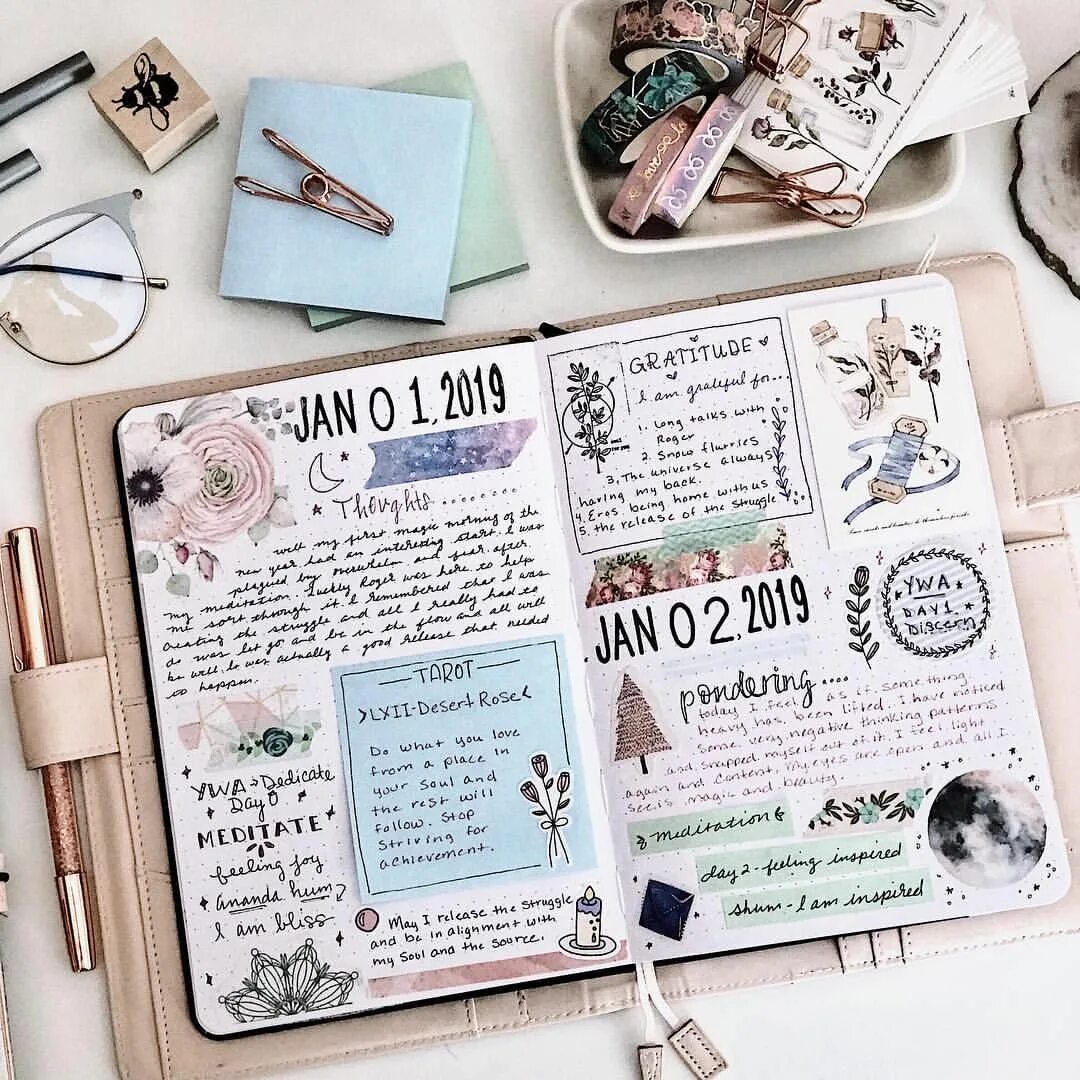 JAN 01, 2019
Thoughts........
well my first magic morning of the
new year had an interesting start. I was
plagued by overwhelm and fear after
my meditation. Luckily Roger was here to help
me sort through it. I remembered that I was
creating the struggle and all I really had to
do was let go and be in the flow and all will
be well. It was actually a good release that needed
to happen.
YWA → Dedicate
Day 0
MEDITATE
feeling joy
ananda hum
I am bliss
TAROT
LXII - Desert Rose
Do what you love
from a place in
your soul and
the rest will
follow. Stop
striving for
achievement.
May I release the struggle
and be in alignment with
my soul and the source.
GRATITUDE
I am grateful for...
1. Long talks with
Roger
2. Snow flurries
3. The universe always
having my back.
4. Eros being home with us
5. the release of the struggle
JAN 02, 2019
YWA
DAY 1
Discern
pondering....
today I feel as if something
heavy has been lifted. I have noticed
some very negative thinking patterns
and snapped myself out of it. I feel light
again and content. My eyes are open and all I
see is magic and beauty.
meditation
day 2 - feeling inspired
shum - I am inspired